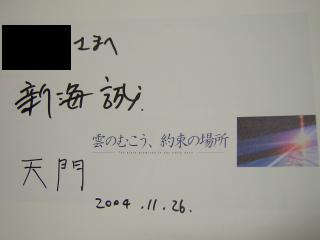 さまへ
新海誠
雲のむこう、約束の場所
The place promised in our early days
天門
2004.11.26.